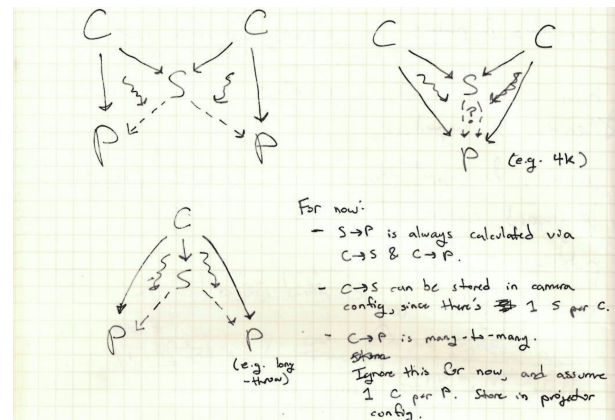 C C
S
P P
C C
S
?
P (e.g. 4k)
C
S
P P
(e.g. long
-throw)
For now:
- S→P is always calculated via
C→S & C→P.
- C→S can be stored in camera
config, since there's 1 S per C.
- C→P is many-to-many.
Ignore this for now, and assume
1 C per P. Store in projector
config.